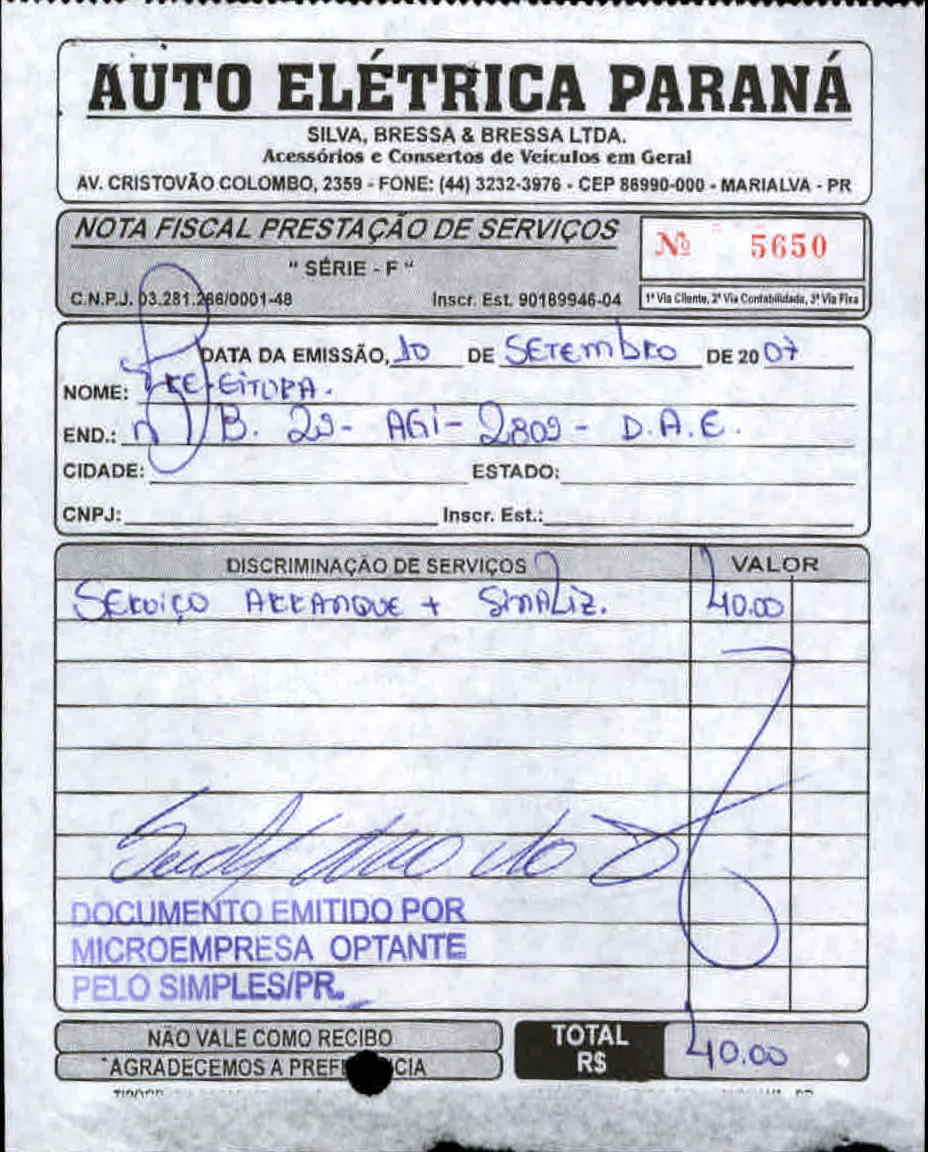 AUTO ELÉTRICA PARANÁ
SILVA, BRESSA & BRESSA LTDA.
Acessórios e Consertos de Veículos em Geral
AV. CRISTOVÃO COLOMBO, 2359 - FONE: (44) 3232-3976 - CEP 86990-000 - MARIALVA - PR
NOTA FISCAL PRESTAÇÃO DE SERVIÇOS
" SÉRIE - F "
Nº 5650
C.N.P.J. 03.281.266/0001-48 Inscr. Est. 90189946-04
1ª Via Cliente, 2ª Via Contabilidade, 3ª Via Fixa
DATA DA EMISSÃO, 10 DE SETEMBRO DE 20 07
NOME: PREFEITURA.
END.: B. 29- AGI- 2809 - D.A.E.
CIDADE: ESTADO:
CNPJ: Inscr. Est.:
DISCRIMINAÇÃO DE SERVIÇOS VALOR
SERVIÇO ARRANQUE + SINALIZ. 40.00
DOCUMENTO EMITIDO POR
MICROEMPRESA OPTANTE
PELO SIMPLES/PR.
NÃO VALE COMO RECIBO
AGRADECEMOS A
TOTAL
R$ 40.00